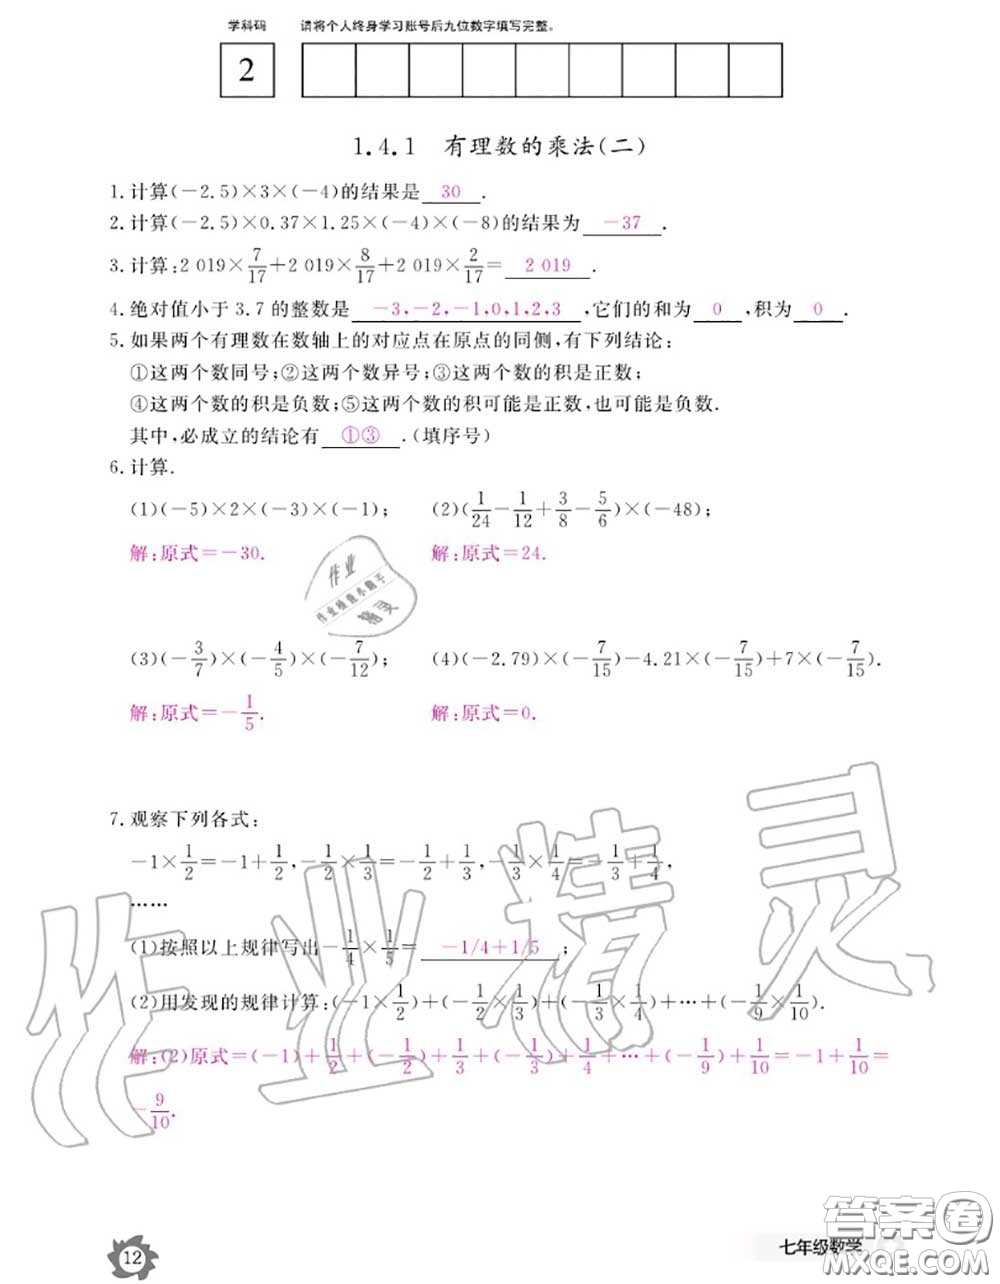 学科码 请将个人终身学习账号后九位数字填写完整。
2
1.4.1 有理数的乘法(二)
1.计算(-2.5)×3×(-4)的结果是 30 .
2.计算(-2.5)×0.37×1.25×(-4)×(-8)的结果为 -37 .
3.计算:2 019×7/17+2 019×8/17+2 019×2/17= 2 019 .
4.绝对值小于3.7的整数是 -3,-2,-1,0,1,2,3 ,它们的和为 0 ,积为 0 .
5.如果两个有理数在数轴上的对应点在原点的同侧,有下列结论:
①这两个数同号;②这两个数异号;③这两个数的积是正数;
④这两个数的积是负数;⑤这两个数的积可能是正数,也可能是负数.
其中,必成立的结论有 ①③ .(填序号)
6.计算.
(1)(-5)×2×(-3)×(-1); (2)(1/24-1/12+3/8-5/6)×(-48);
解:原式=-30. 解:原式=24.
作业
作业检查小助手
精灵
(3)(-3/7)×(-4/5)×(-7/12); (4)(-2.79)×(-7/15)-4.21×(-7/15)+7×(-7/15).
解:原式=-1/5. 解:原式=0.
7.观察下列各式:
-1×1/2=-1+1/2,-1/2×1/3=-1/2+1/3,-1/3×1/4=-1/3+1/4,
……
(1)按照以上规律写出-1/4×1/5= -1/4+1/5 ;
(2)用发现的规律计算:(-1×1/2)+(-1/2×1/3)+(-1/3×1/4)+…+(-1/9×1/10).
解:(2)原式=(-1)+1/2+(-1/2)+1/3+(-1/3)+1/4+…+(-1/9)+1/10=-1+1/10=
-9/10.
作业精灵
12
七年级数学
答案圈
MXQE.COM